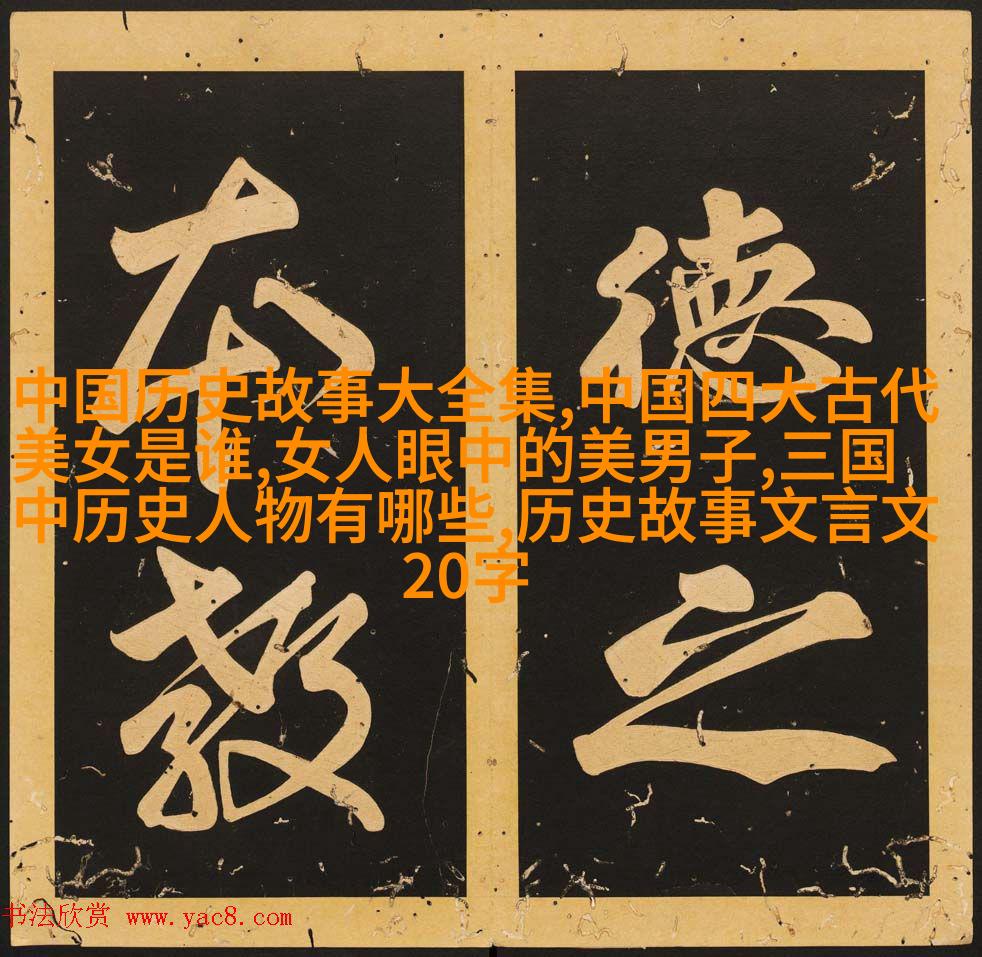 德之
本教
中国历史故事大全集,中国四大古代
美女是谁,女人眼中的美男子,三国
中历史人物有哪些,历史故事文言文
20字
书法欣赏 www.yac8.com